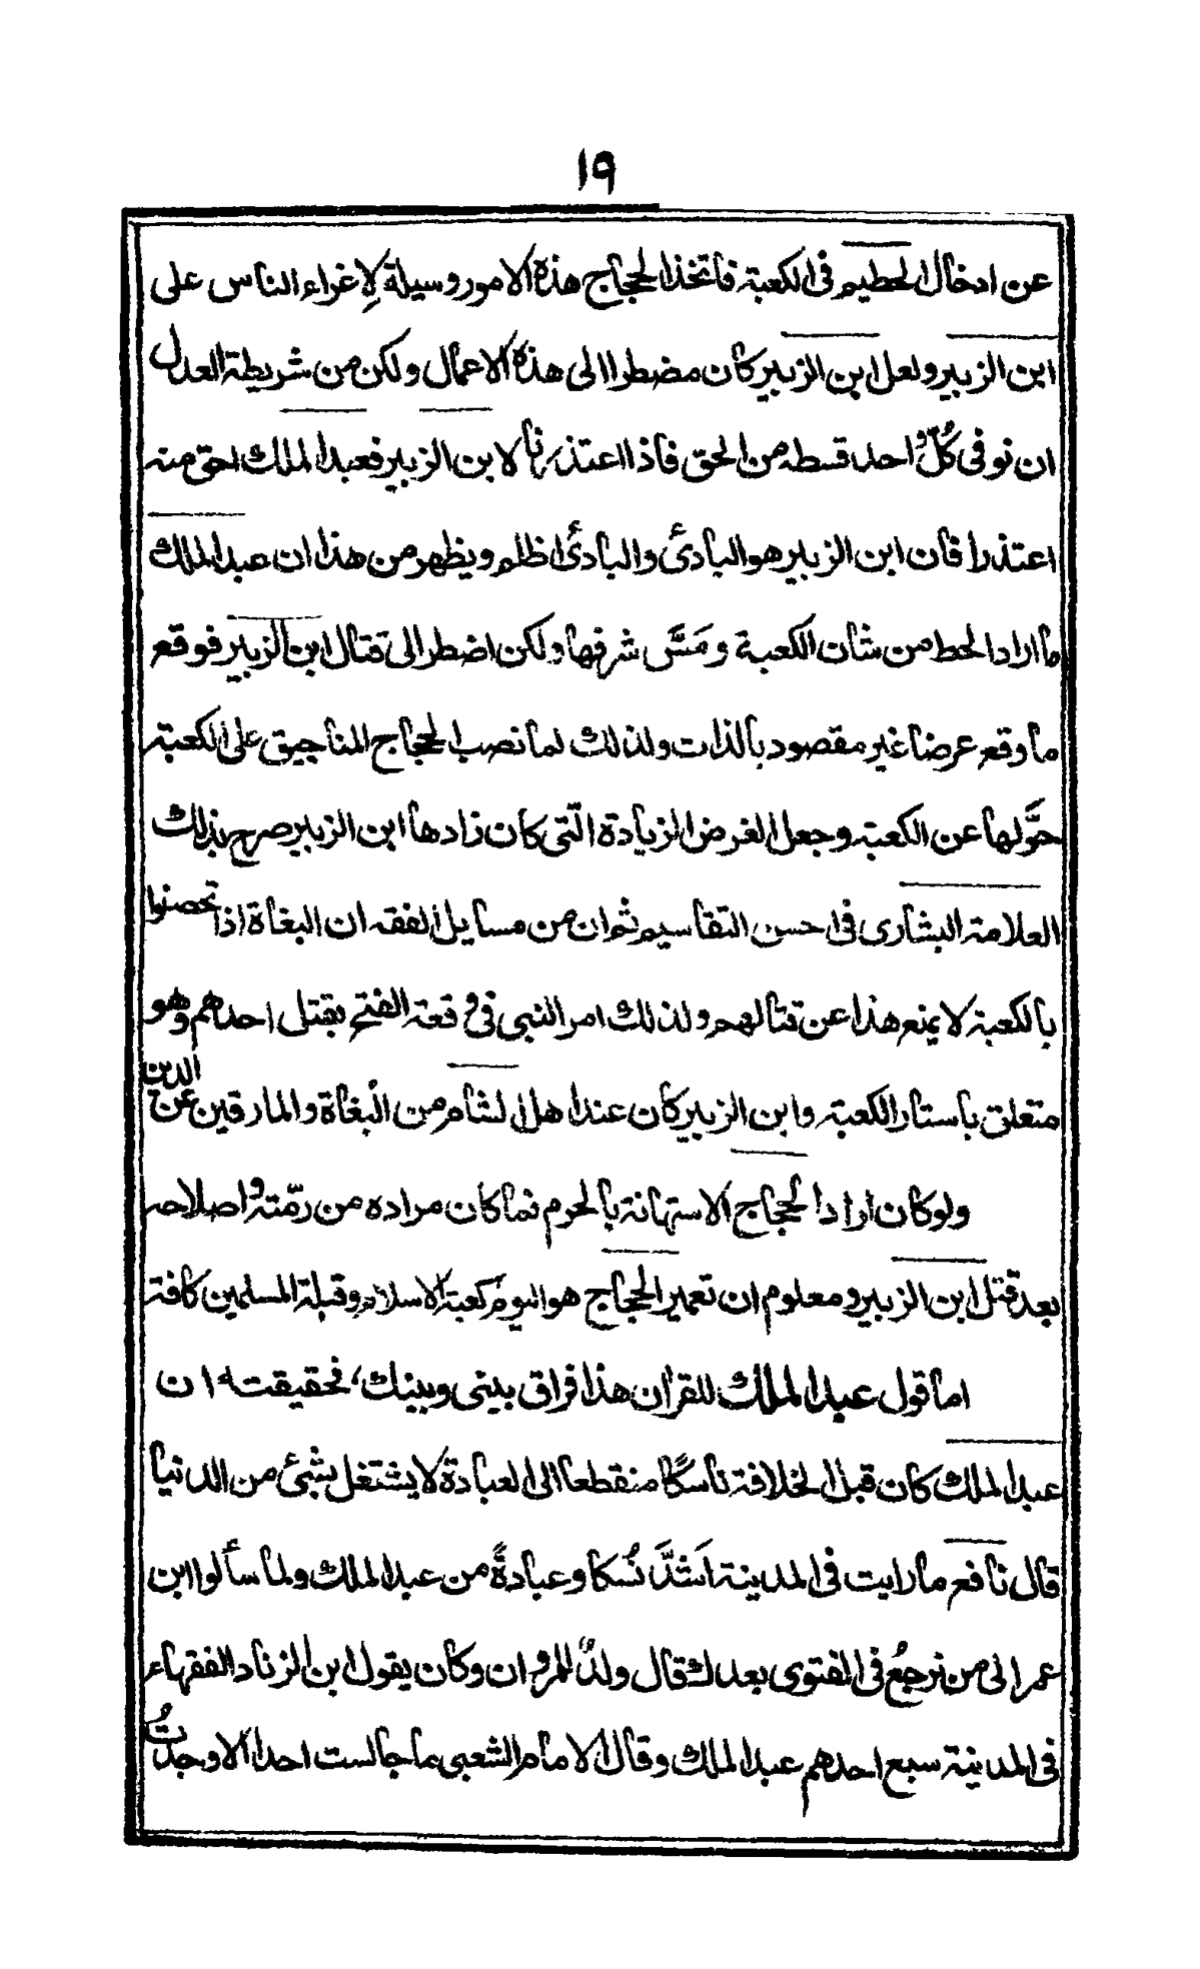 ١٩
عن ادخال الحطيم فى الكعبة فاتخذ الحجاج هذه الامور وسيلة لِاغراء الناس على
ابن الزبير ولعل ابن الزبير كان مضطرا الى هذه الاعمال ولكن من شريطة العدل
ان نوفى كُلّ واحد قسطه من الحق فاذا اعتذرنا لابن الزبير فعبد الملك احق منه
اعتذرا فان ابن الزبير هو البادئ والبادئ اظلم ويظهر من هذا ان عبد الملك
ما اراد الحط من شان الكعبة ومَسَّ شرفها ولكن اضطر الى قتال ابن الزبير فوقع
ما وقع عرضا غير مقصود بالذات ولذلك لما نصب الحجاج المناجيق على الكعبة
حوَّلها عن الكعبة وجعل الغرض الزيادة الّتى كان زادها ابن الزبير صرح بذلك
العلامة البشارى فى احسن التقاسيم ثم ان من مسايل الفقه ان البغاة اذا تحصنوا
بالكعبة لا يمنع هذا عن قتالهم ولذلك امر النبى فى وقعة الفتح بقتل احدهم وهو
متعلق باستار الكعبة وابن الزبير كان عند اهل الشام من البغاة والمارقين عن الدين
ولو كان اراد الحجاج الاستهانة بالحرم فما كان مراده من رمّته واصلاحه
بعد قتل ابن الزبير ومعلوم ان تعمير الحجاج هو اليوم كعبة الاسلام وقبلة المسلمين كافة
اما قول عبد الملك للقران هذا فراق بينى وبينك، فحقيقته ان
عبد الملك كان قبل الخلافة ناسكًا منقطعا الى العبادة لا يشتغل بشئ من الدنيا
قال نافع ما رايت فى المدينة اَشَدَّ نُسكا وعبادةً من عبد الملك ولما سألوا ابن
عمر الى من نرجعُ فى الفتوى بعدك قال ولدٌ لمروان وكان يقول ابن الزناد الفقهاء
فى المدينة سبع احدهم عبد الملك وقال الامام الشعبى ما جالست احدا الا وجدتُ